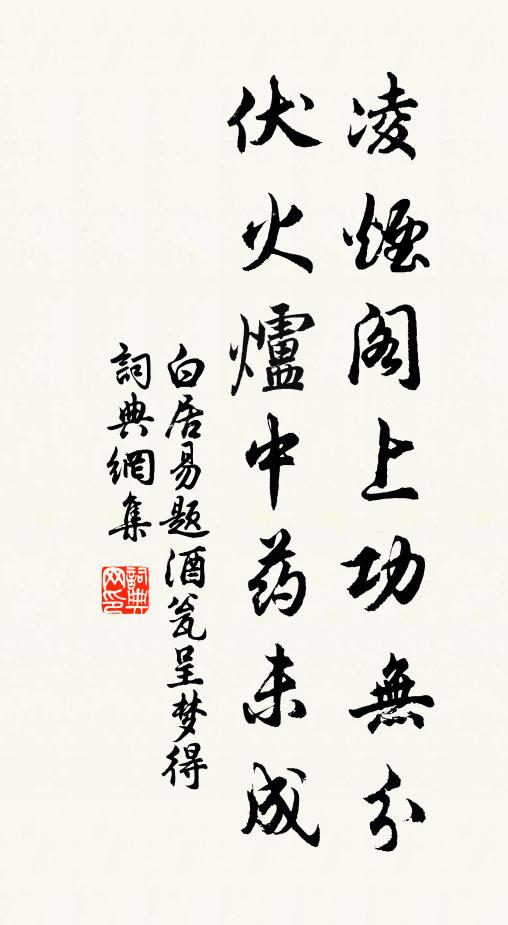 凌煙閣上功無分
伏火爐中药未成
白居易题酒瓮呈梦得
詞典網集
詞典
网印